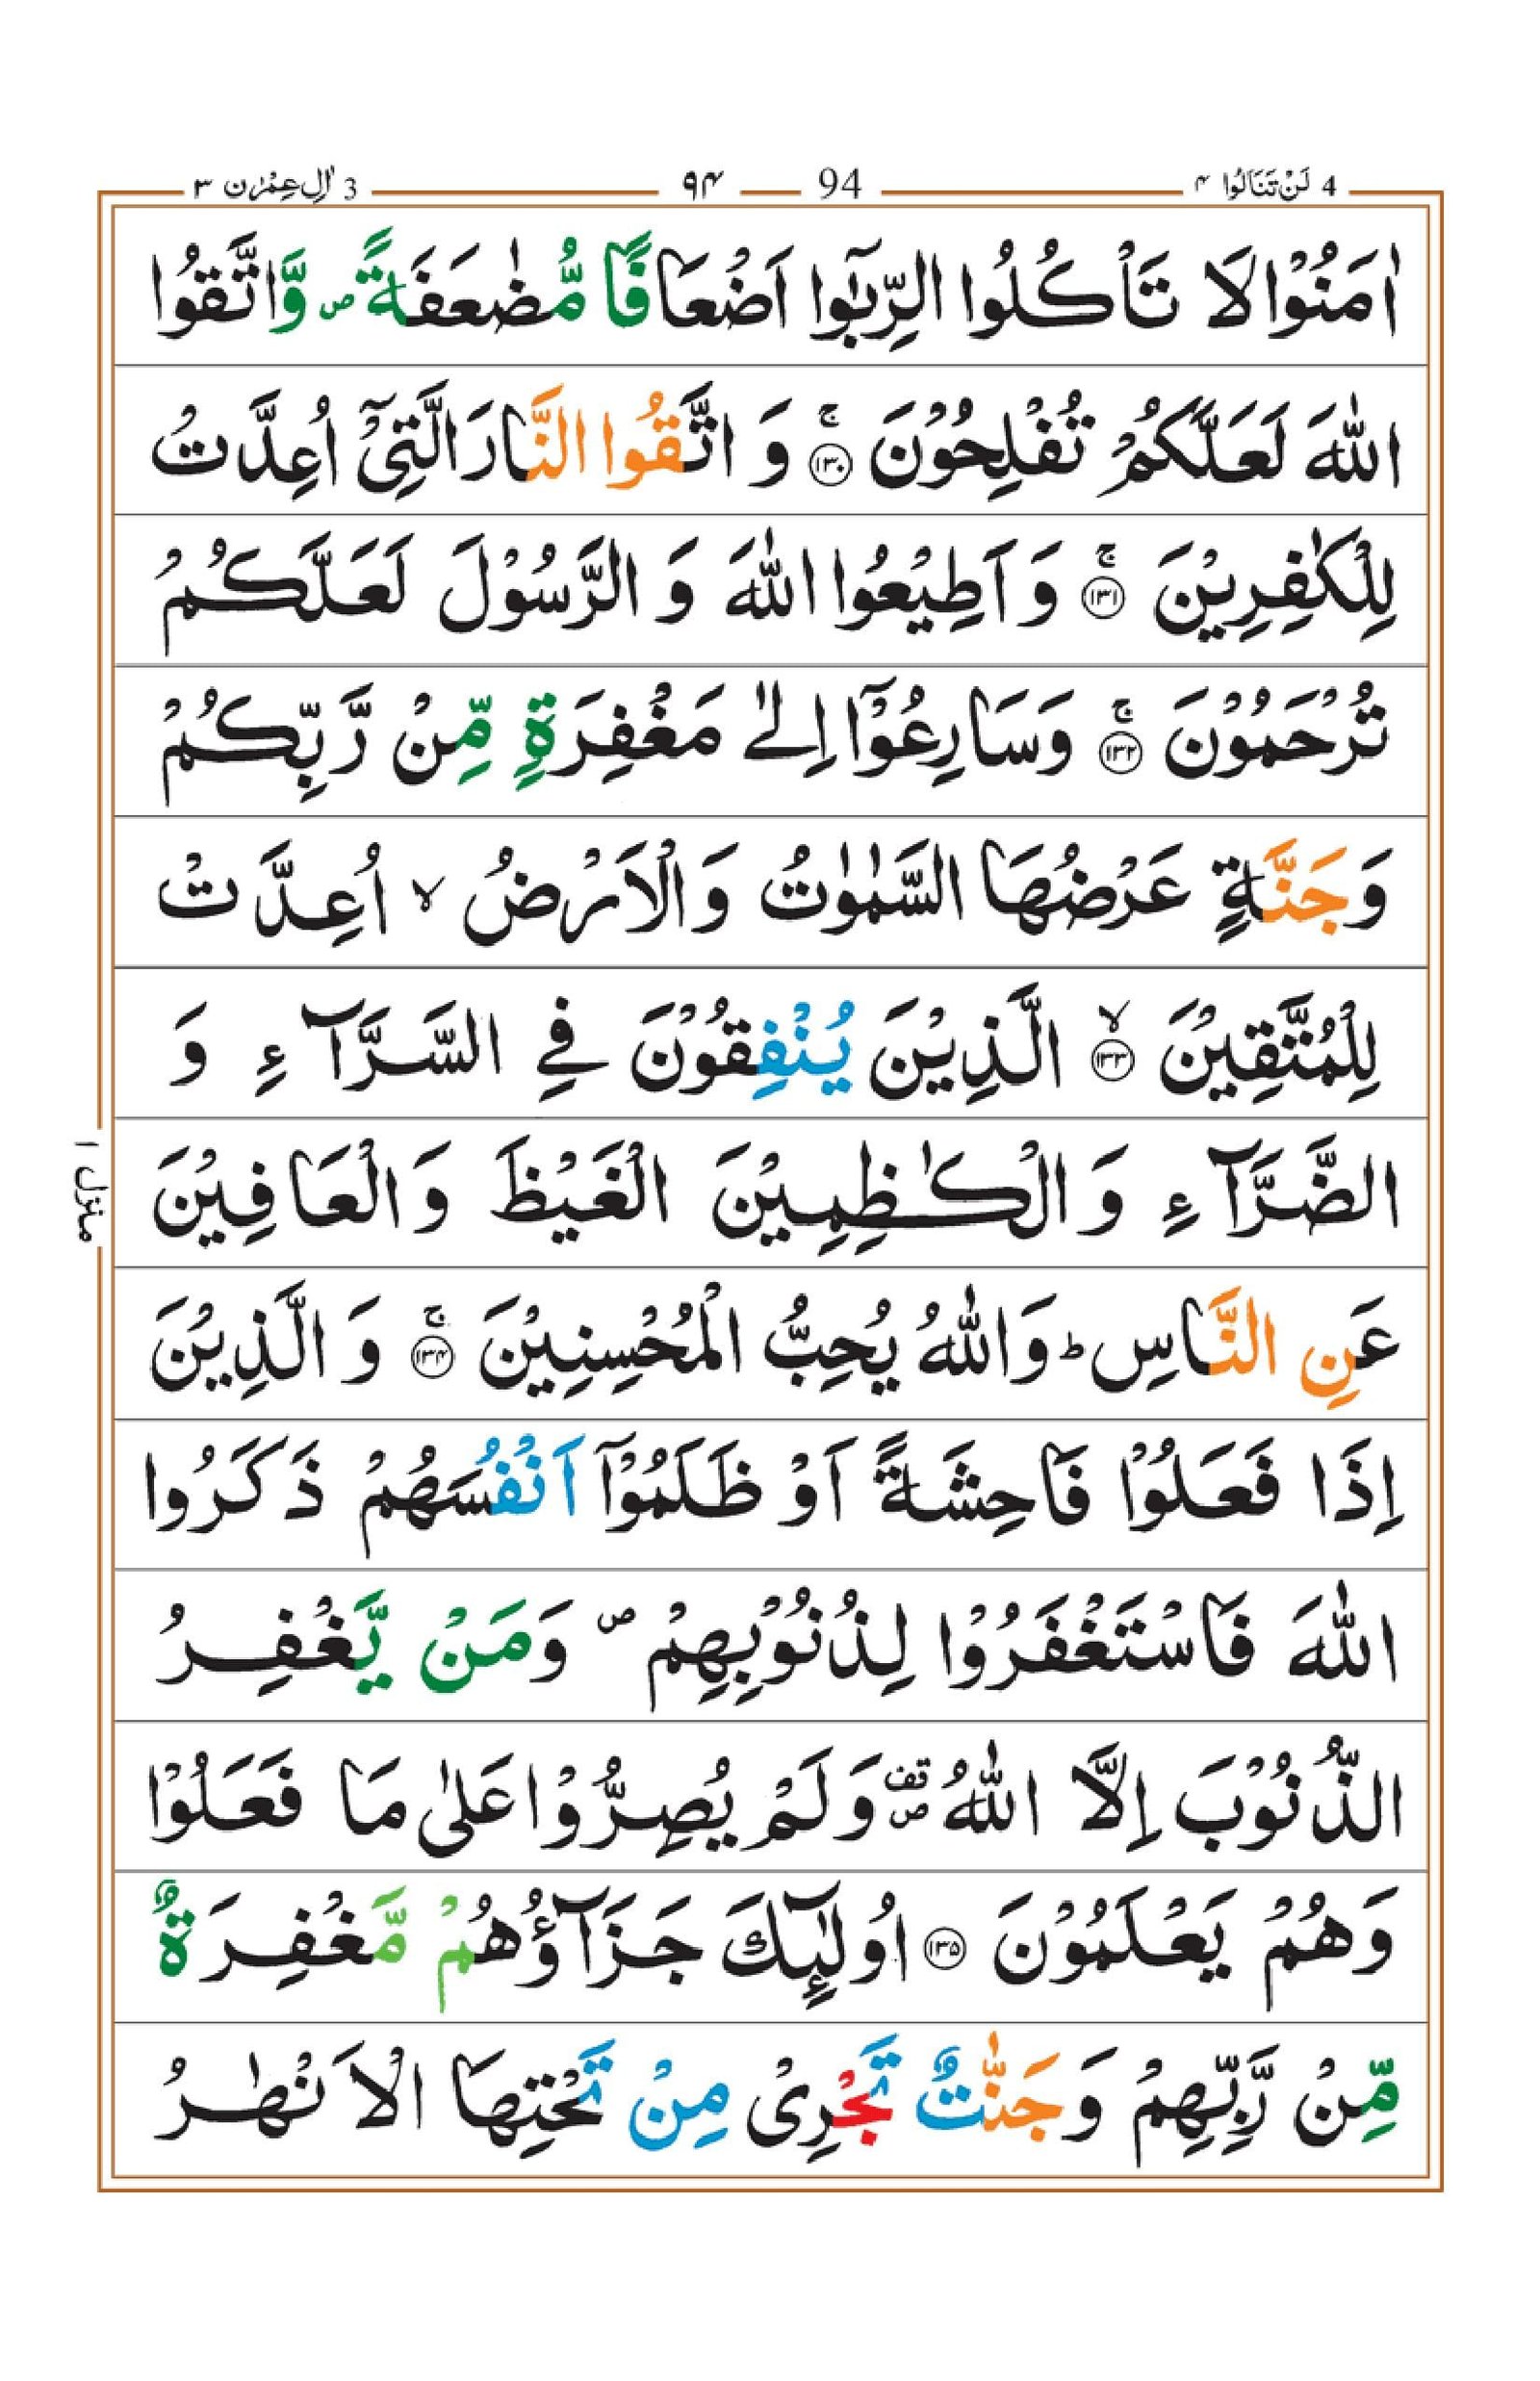 4 لَنْ تَنَالُوا ۴
94 ۹۴
3 اٰلِ عِمْرٰن ۳
اٰمَنُوْا لَا تَاْكُلُوا الرِّبٰٓوا اَضْعَافًا مُّضٰعَفَةً ۪ وَّاتَّقُوا
اللّٰهَ لَعَلَّكُمْ تُفْلِحُوْنَ ۚ‏﴿۱۳۰﴾ وَ اتَّقُوا النَّارَ الَّتِیْۤ اُعِدَّتْ
لِلْكٰفِرِیْنَ ۚ‏﴿۱۳۱﴾ وَ اَطِیْعُوا اللّٰهَ وَ الرَّسُوْلَ لَعَلَّكُمْ
تُرْحَمُوْنَ ۚ‏﴿۱۳۲﴾ وَسَارِعُوْۤا اِلٰی مَغْفِرَةٍ مِّنْ رَّبِّكُمْ
وَجَنَّةٍ عَرْضُهَا السَّمٰوٰتُ وَالْاَرْضُ ۙ اُعِدَّتْ
لِلْمُتَّقِیْنَ ۙ‏﴿۱۳۳﴾ الَّذِیْنَ یُنْفِقُوْنَ فِی السَّرَّآءِ وَ
الضَّرَّآءِ وَالْكٰظِمِیْنَ الْغَیْظَ وَالْعَافِیْنَ
عَنِ النَّاسِ ؕ وَاللّٰهُ یُحِبُّ الْمُحْسِنِیْنَ ۚ‏﴿۱۳۴﴾ وَالَّذِیْنَ
اِذَا فَعَلُوْا فَاحِشَةً اَوْ ظَلَمُوْۤا اَنْفُسَهُمْ ذَكَرُوا
اللّٰهَ فَاسْتَغْفَرُوْا لِذُنُوْبِهِمْ ۪ وَمَنْ یَّغْفِرُ
الذُّنُوْبَ اِلَّا اللّٰهُ ۪۫ وَلَمْ یُصِرُّوْا عَلٰی مَا فَعَلُوْا
وَهُمْ یَعْلَمُوْنَ ﴿۱۳۵﴾ اُولٰٓىِٕكَ جَزَآؤُهُمْ مَّغْفِرَةٌ
مِّنْ رَّبِّهِمْ وَجَنّٰتٌ تَجْرِیْ مِنْ تَحْتِهَا الْاَنْهٰرُ
منزل ۱